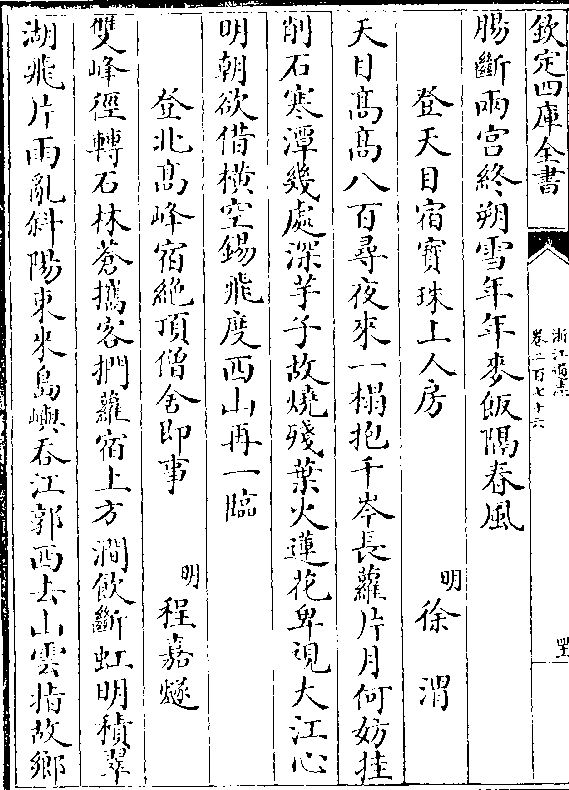 欽定四庫全書
浙江通志
卷二百七十六
腸斷兩宮終朔雪年年麥飯隔春風
登天目宿寳珠上人房
明 徐渭
天目髙髙八百尋夜來一榻抱千岑長蘿片月何妨挂
削石寒潭幾處深芋子故燒殘葉火蓮花卑視大江心
明朝欲借横空錫飛度西山再一臨
登北髙峰宿絶頂僧舍即事
明 程嘉燧
雙峰徑轉石林蒼攜客捫蘿宿上方澗飲斷虹明積翠
湖飛片雨亂斜陽東來島嶼吞江郭西去山雲指故鄉